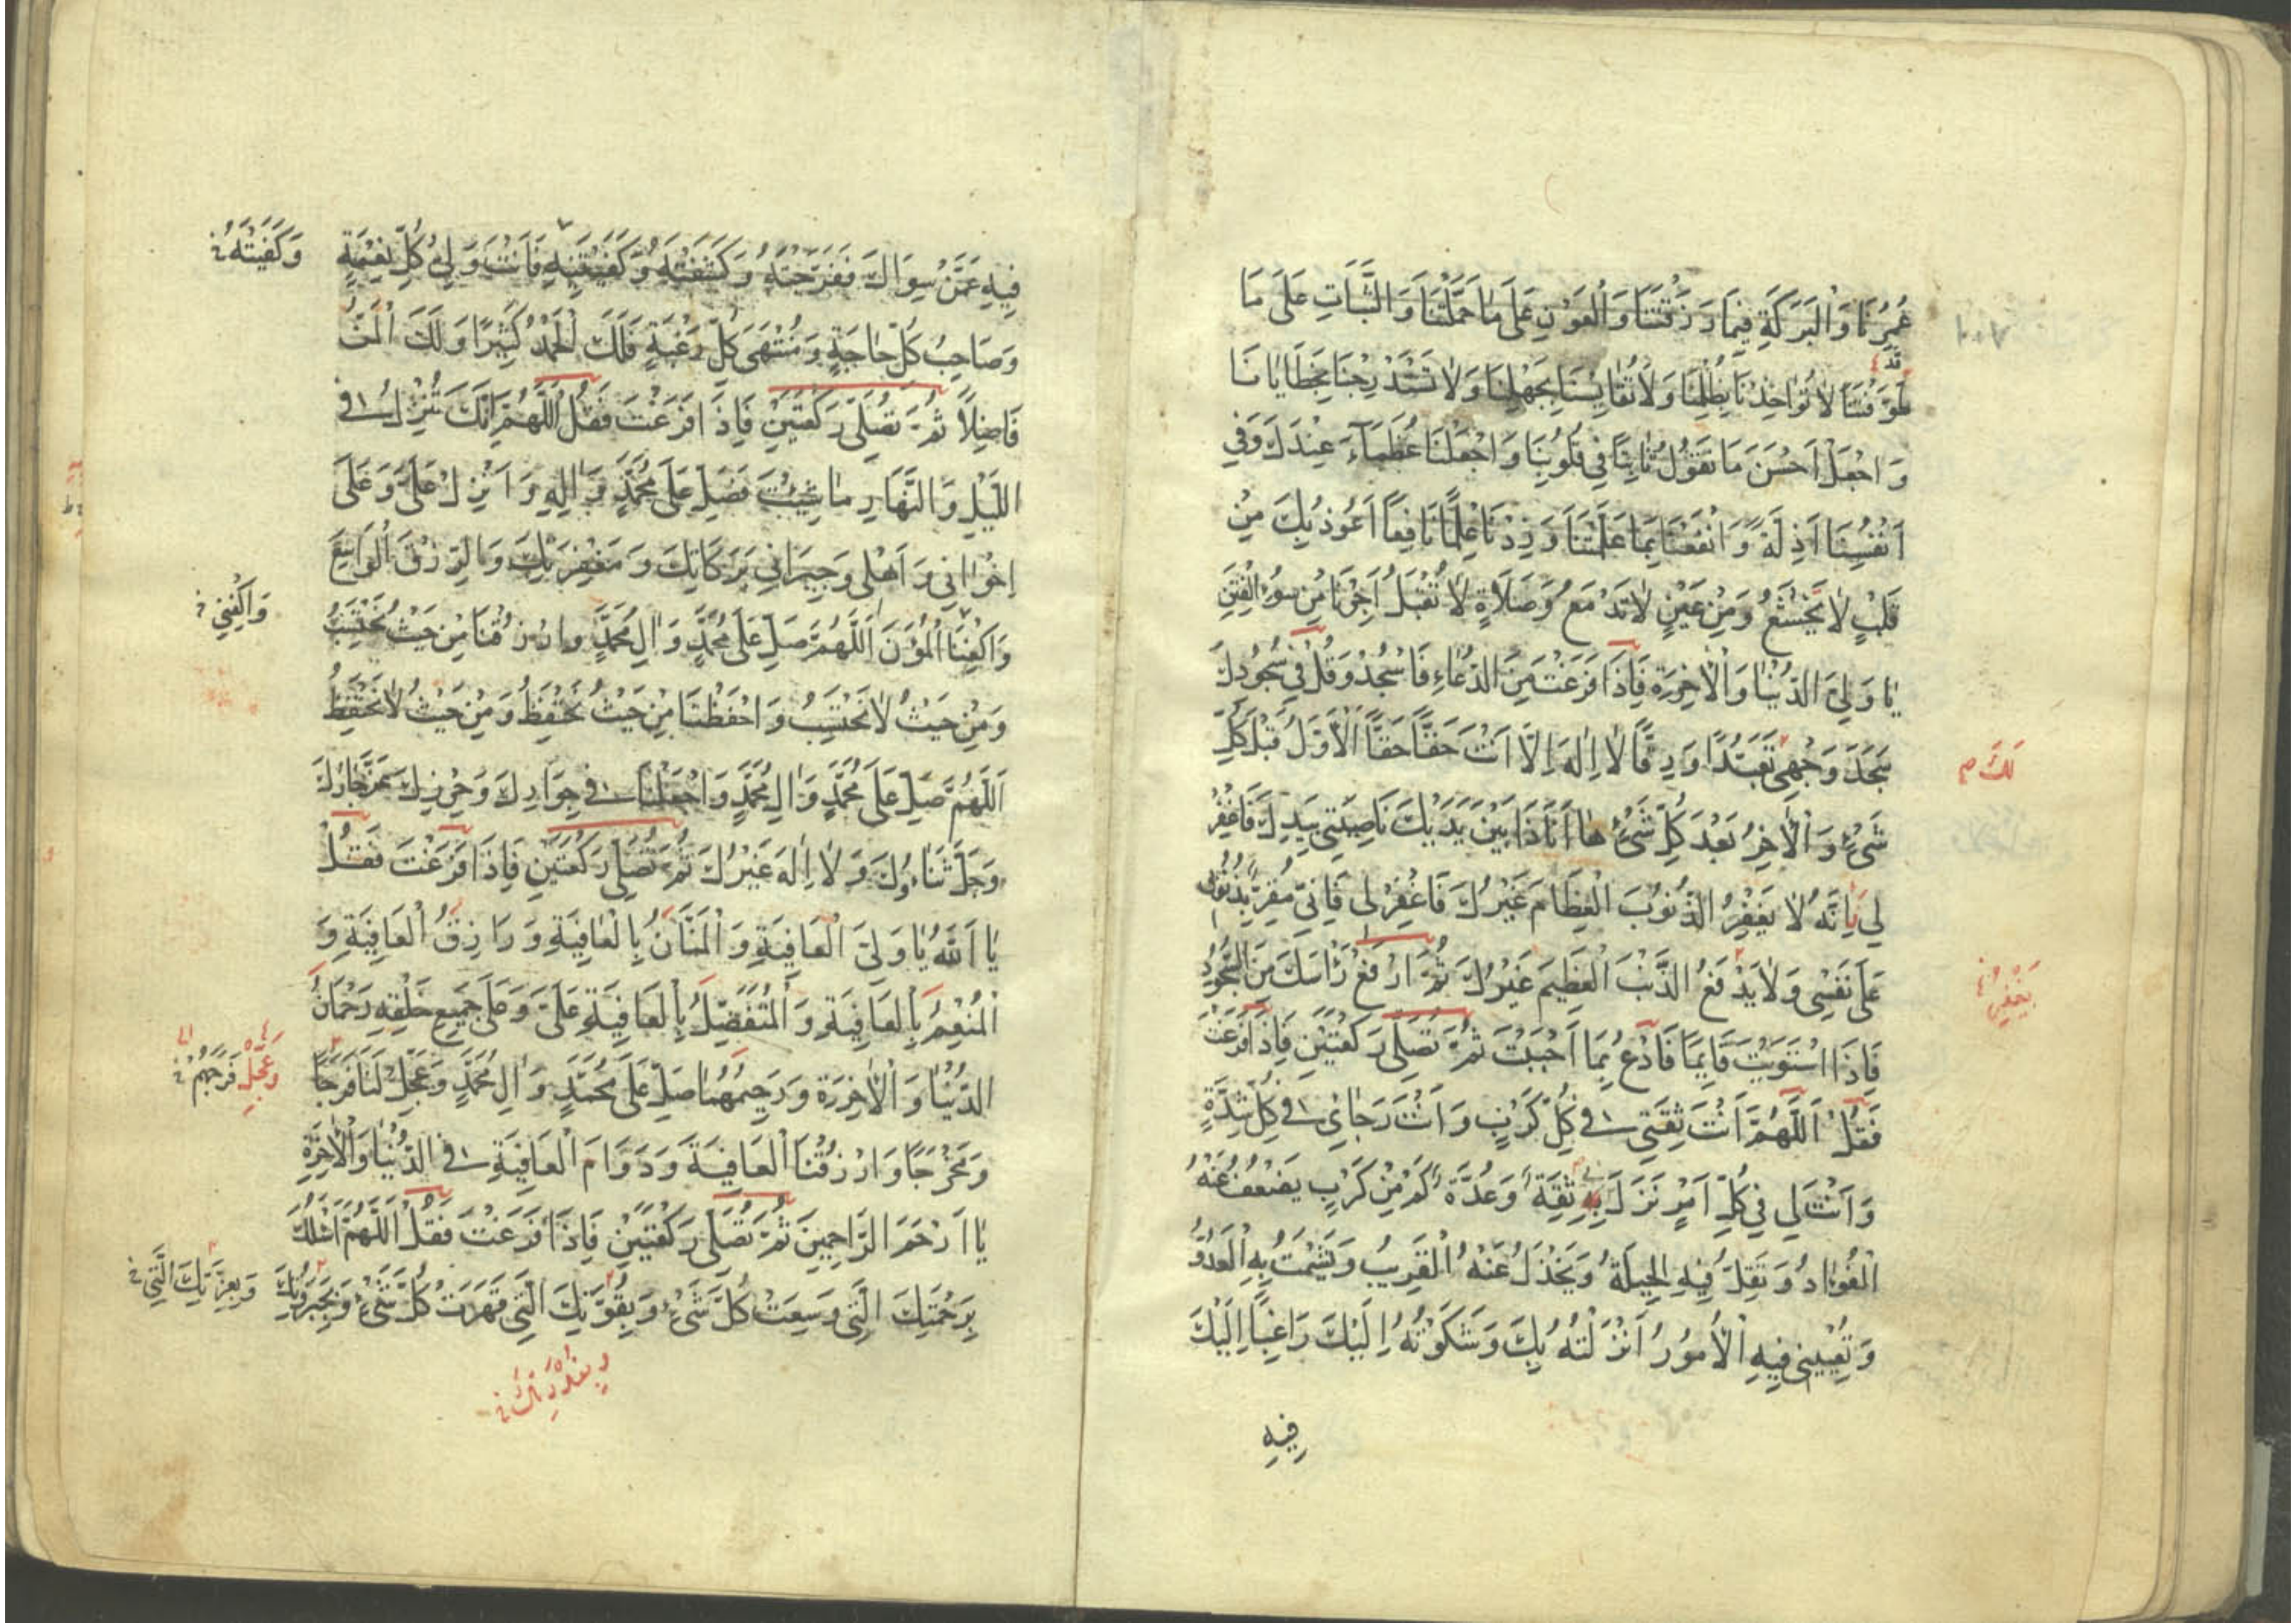 عُمُرِنَا وَالْبَرَكَةِ فِيمَا رَزَقْتَنَا وَالْعَوْنِ عَلَى مَا حَمَّلْتَنَا وَالثَّبَاتِ عَلَى مَا
طَوَّقْتَنَا لَا تُؤَاخِذْنَا بِظُلْمِنَا وَلَا تُقَايِسْنَا بِجَهْلِنَا وَلَا تَسْتَدْرِجْنَا بِخَطَايَانَا
وَاجْعَلْ أَحْسَنَ مَا نَقُولُ ثَابِتًا فِي قُلُوبِنَا وَاجْعَلْنَا عُظَمَاءَ عِنْدَكَ وَفِي
أَنْفُسِنَا أَذِلَّةً وَانْفَعْنَا بِمَا عَلَّمْتَنَا وَزِدْنَا عِلْمًا نَافِعًا أَعُوذُ بِكَ مِنْ
قَلْبٍ لَا يَخْشَعُ وَمِنْ عَيْنٍ لَا تَدْمَعُ وَصَلَاةٍ لَا تُقْبَلُ أَجِرْنَا مِنْ سُوءِ الْفِتَنِ
يَا وَلِيَّ الدُّنْيَا وَالْآخِرَةِ فَإِذَا فَرَغْتَ مِنَ الدُّعَاءِ فَاسْجُدْ وَقُلْ فِي سُجُودِكَ
سَجَدَ وَجْهِي تَعَبُّدًا وَرِقًّا لَا إِلَهَ إِلَّا أَنْتَ حَقًّا حَقًّا الْأَوَّلُ قَبْلَ كُلِّ
شَيْءٍ وَالْآخِرُ بَعْدَ كُلِّ شَيْءٍ هَا أَنَا ذَا بَيْنَ يَدَيْكَ نَاصِيَتِي بِيَدِكَ فَاغْفِرْ
لِي إِنَّهُ لَا يَغْفِرُ الذُّنُوبَ الْعِظَامَ غَيْرُكَ فَاغْفِرْ لِي فَإِنِّي مُقِرٌّ بِذُنُوبِي
عَلَى نَفْسِي وَلَا يَدْفَعُ الذَّنْبَ الْعَظِيمَ غَيْرُكَ ثُمَّ ارْفَعْ رَأْسَكَ مِنَ السُّجُودِ
فَإِذَا اسْتَوَيْتَ قَائِمًا فَادْعُ بِمَا أَحْبَبْتَ ثُمَّ تُصَلِّي رَكْعَتَيْنِ فَإِذَا فَرَغْتَ
فَقُلْ اللَّهُمَّ أَنْتَ ثِقَتِي فِي كُلِّ كَرْبٍ وَأَنْتَ رَجَائِي فِي كُلِّ شِدَّةٍ
وَأَنْتَ لِي فِي كُلِّ أَمْرٍ نَزَلَ بِي ثِقَةٌ وَعُدَّةٌ كَمْ مِنْ كَرْبٍ يَضْعُفُ عَنْهُ
الْفُؤَادُ وَتَقِلُّ فِيهِ الْحِيلَةُ وَيَخْذُلُ عَنْهُ الْقَرِيبُ وَيَشْمَتُ بِهِ الْعَدُوُّ
وَتُعْيِينِي فِيهِ الْأُمُورُ أَنْزَلْتُهُ بِكَ وَشَكَوْتُهُ إِلَيْكَ رَاغِبًا إِلَيْكَ
فِيهِ
١٠٧
قَدْ
لَكَ
يَغْفِرُ
فِيهِ عَمَّنْ سِوَاكَ فَفَرَّجْتَهُ وَكَشَفْتَهُ وَكَفَيْتَنِيهِ فَأَنْتَ وَلِيُّ كُلِّ نِعْمَةٍ
وَصَاحِبُ كُلِّ حَاجَةٍ وَمُنْتَهَى كُلِّ رَغْبَةٍ فَلَكَ الْحَمْدُ كَثِيرًا وَلَكَ الْمَنُّ
فَاضِلًا ثُمَّ تُصَلِّي رَكْعَتَيْنِ فَإِذَا فَرَغْتَ فَقُلْ اللَّهُمَّ إِنَّكَ تُنْزِلُ فِي
اللَّيْلِ وَالنَّهَارِ مَا شِئْتَ فَصَلِّ عَلَى مُحَمَّدٍ وَآلِهِ وَأَنْزِلْ عَلَيَّ وَعَلَى
إِخْوَانِي وَأَهْلِي وَجِيرَانِي بَرَكَاتِكَ وَمَغْفِرَتِكَ وَالرِّزْقَ الْوَاسِعَ
وَاكْفِنَا الْمُؤَنَ اللَّهُمَّ صَلِّ عَلَى مُحَمَّدٍ وَآلِ مُحَمَّدٍ وَارْزُقْنَا مِنْ حَيْثُ نَحْتَسِبُ
وَمِنْ حَيْثُ لَا نَحْتَسِبُ وَاحْفَظْنَا مِنْ حَيْثُ نَحْتَفِظُ وَمِنْ حَيْثُ لَا نَحْتَفِظُ
اللَّهُمَّ صَلِّ عَلَى مُحَمَّدٍ وَآلِ مُحَمَّدٍ وَاجْعَلْنَا فِي جِوَارِكَ وَحِرْزِكَ عَزَّ جَارُكَ
وَجَلَّ ثَنَاؤُكَ وَلَا إِلَهَ غَيْرُكَ ثُمَّ تُصَلِّي رَكْعَتَيْنِ فَإِذَا فَرَغْتَ فَقُلْ
يَا اَللَّهُ يَا وَلِيَّ الْعَافِيَةِ وَالْمَنَّانُ بِالْعَافِيَةِ وَرَازِقُ الْعَافِيَةِ وَ
الْمُنْعِمُ بِالْعَافِيَةِ وَالْمُتَفَضِّلُ بِالْعَافِيَةِ عَلَيَّ وَعَلَى جَمِيعِ خَلْقِهِ رَحْمَانُ
الدُّنْيَا وَالْآخِرَةِ وَرَحِيمُهُمَا صَلِّ عَلَى مُحَمَّدٍ وَآلِ مُحَمَّدٍ وَعَجِّلْ لَنَا فَرَجًا
وَمَخْرَجًا وَارْزُقْنَا الْعَافِيَةَ وَدَوَامَ الْعَافِيَةِ فِي الدُّنْيَا وَالْآخِرَةِ
يَا أَرْحَمَ الرَّاحِمِينَ ثُمَّ تُصَلِّي رَكْعَتَيْنِ فَإِذَا فَرَغْتَ فَقُلْ اللَّهُمَّ أَسْئَلُكَ
بِرَحْمَتِكَ الَّتِي وَسِعَتْ كُلَّ شَيْءٍ وَبِقُوَّتِكَ الَّتِي قَهَرَتْ كُلَّ شَيْءٍ وَبِجَبَرُوتِكَ
وَكَفَيْتَهُ
وَاكْفِنِي
وَعَجِّلْ فَرَجَهُمْ
وَبِعِزَّتِكَ الَّتِي